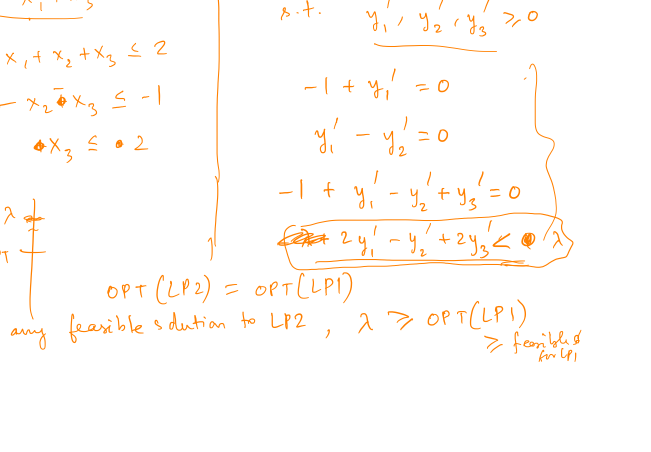 x₁ + x₃
x₁ + x₂ + x₃ ≤ 2
- x₂ - x₃ ≤ -1
x₃ ≤ 2
λ
T
s.t. y₁', y₂', y₃' ≥ 0
-1 + y₁' = 0
y₁' - y₂' = 0
-1 + y₁' - y₂' + y₃' = 0
2y₁' - y₂' + 2y₃' < λ
OPT(LP2) = OPT(LP1)
any feasible solution to LP2, λ ≥ OPT(LP1)
≥ feasible
for LP1